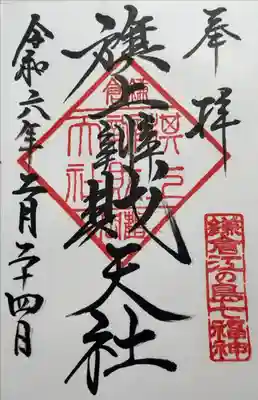 奉拝
旗上辨財天社
令和六年二月二十四日
鎌倉江の島七福神